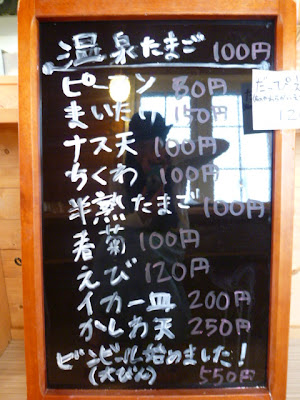 温泉たまご 100円
ピーマン 80円
まいたけ 150円
ナス天 100円
ちくわ 100円
半熟たまご 100円
春菊 100円
えび 120円
イカ一皿 200円
かしわ天 250円
ビンビール始めました!
(大びん) 550円